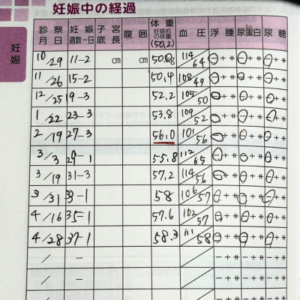 妊娠中の経過
妊娠
診察月日 妊娠週数・日 子宮底長 腹囲 体重 妊娠前の体重(50.2) 血圧 浮腫 尿蛋白 尿糖
10/29 11-2 cm cm 50.6 114/64 - + ++ - + ++ - + ++
11/26 15-2 50.4 108/49 - + ++ - + ++ - + ++
12/25 19-3 52.2 105/50 - + ++ - + ++ - + ++
1/22 23-3 53.8 109/52 - + ++ - + ++ - + ++
2/19 27-3 56.0 114/56 - + ++ - + ++ - + ++
3/3 29-1 55.8 112/65 - + ++ - + ++ - + ++
3/19 31-3 57.2 114/56 - + ++ - + ++ - + ++
3/31 33-1 58 106/57 - + ++ - + ++ - + ++
4/16 35-1 57.6 102/57 - + ++ - + ++ - + ++
4/28 37-1 58.3 111/58 - + ++ - + ++ - + ++
/ - / - + ++ - + ++ - + ++
/ - / - + ++ - + ++ - + ++